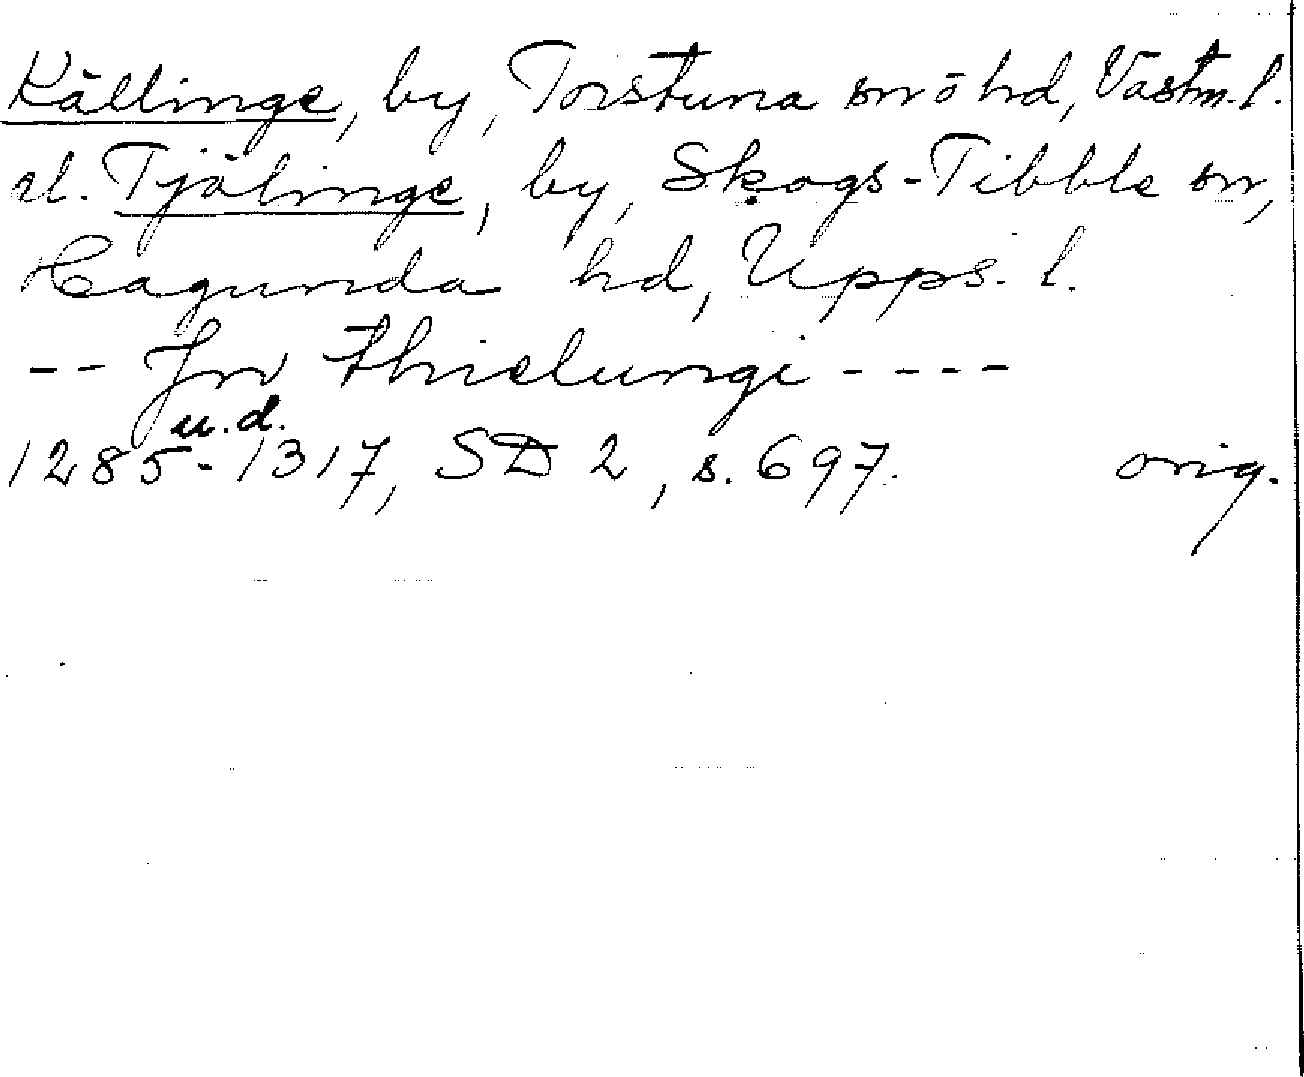 Källinge, by, Torstuna sn ō hd, Västm. l.
el. Tjälinge, by, Skogs-Tibble sn,
Hagunda hd, Upps. l.
-- Jn thielungi ----
u.d.
1285-1317, SD 2, s. 697. orig.